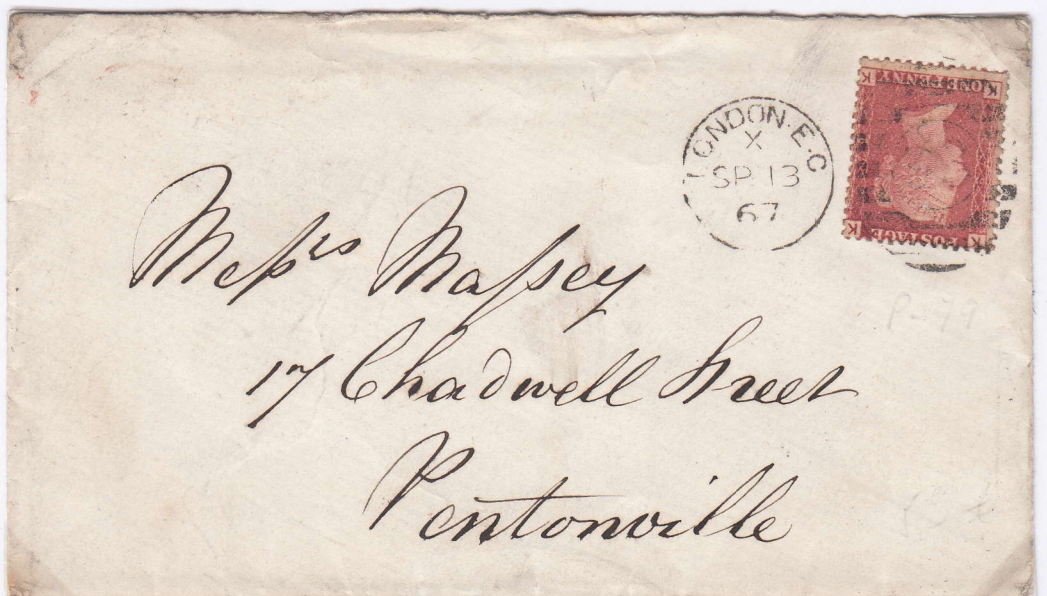 LONDON·E·C
X
SP 13
67
K ONE PENNY K
K POSTAGE K
Messrs Massey
17 Chadwell Street
Pentonville